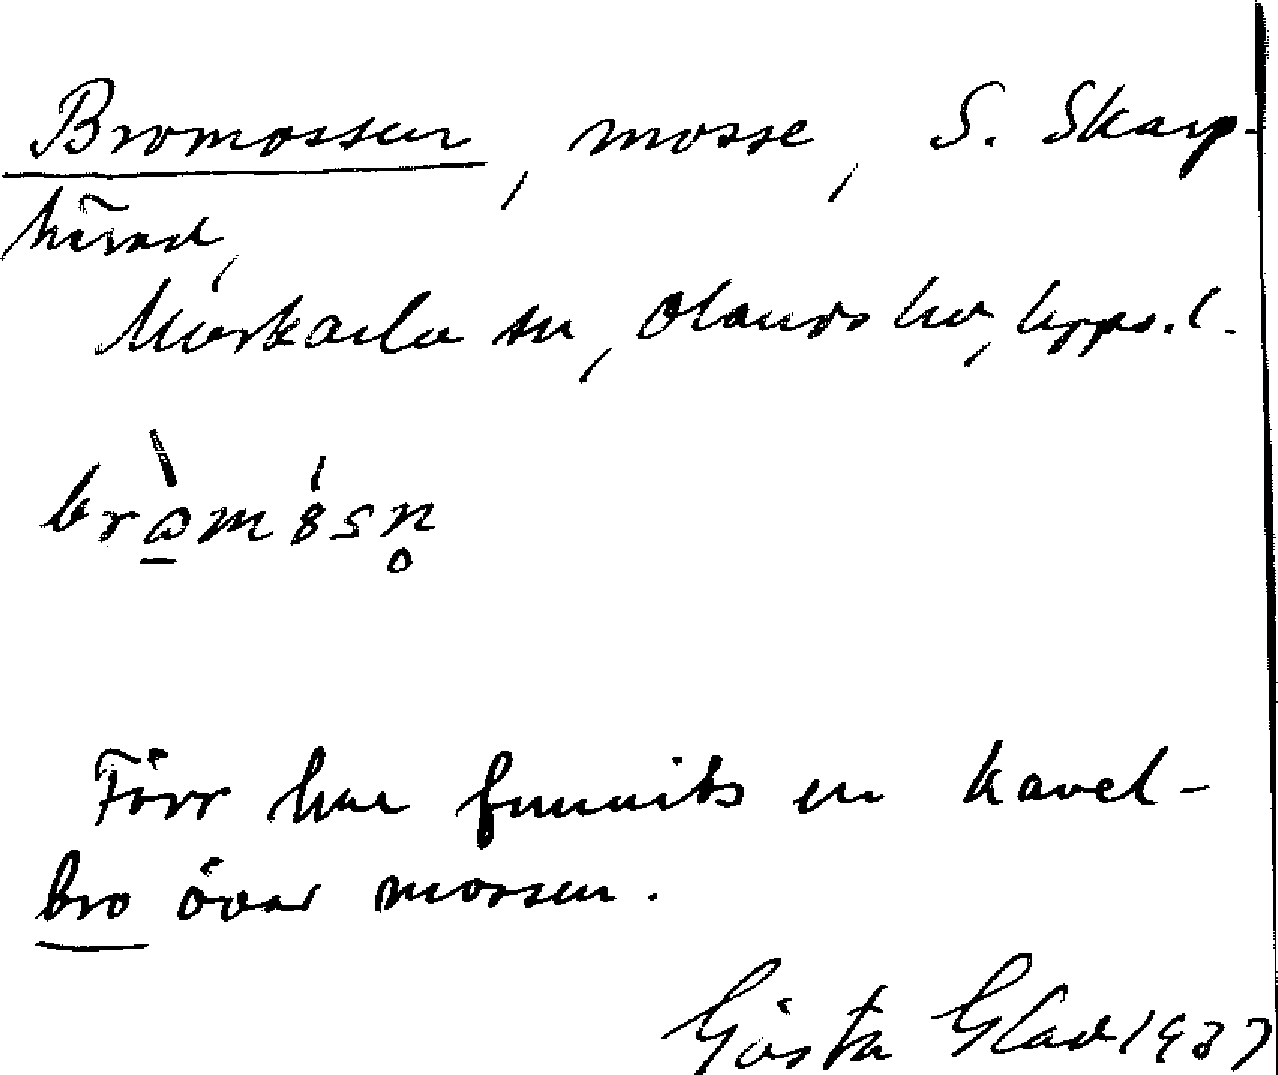 Bromossen, mosse, S. Skarp-
härad,
Morkarla sn, Olands hd, Upps. l.
bròmósn̥
Förr har funnits en kavel-
bro över mossen.
Gösta Glad 1937